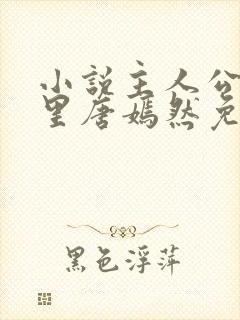 小说主人公
里唐嫣然免
黑色浮萍